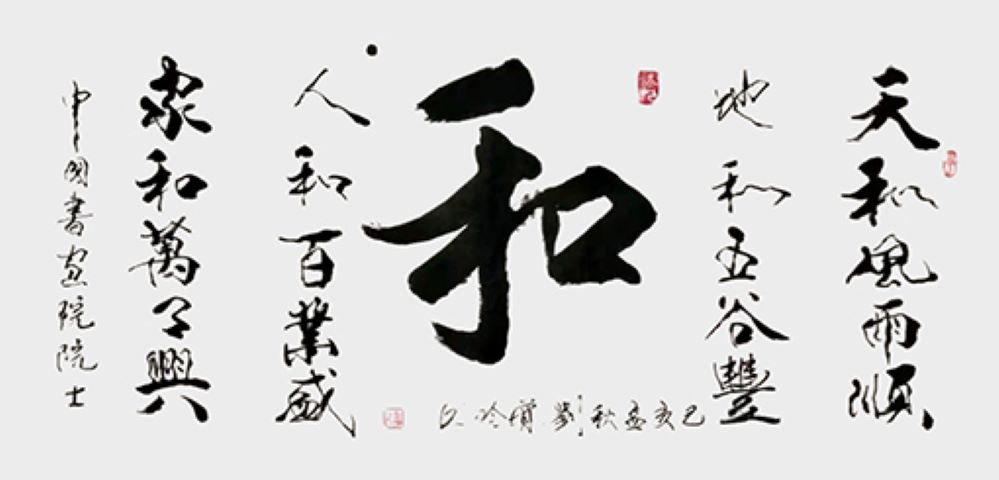 天和風雨順
地和五谷豐
和
人和百業盛
家和萬事興
己亥孟秋劉
中國書画院院士